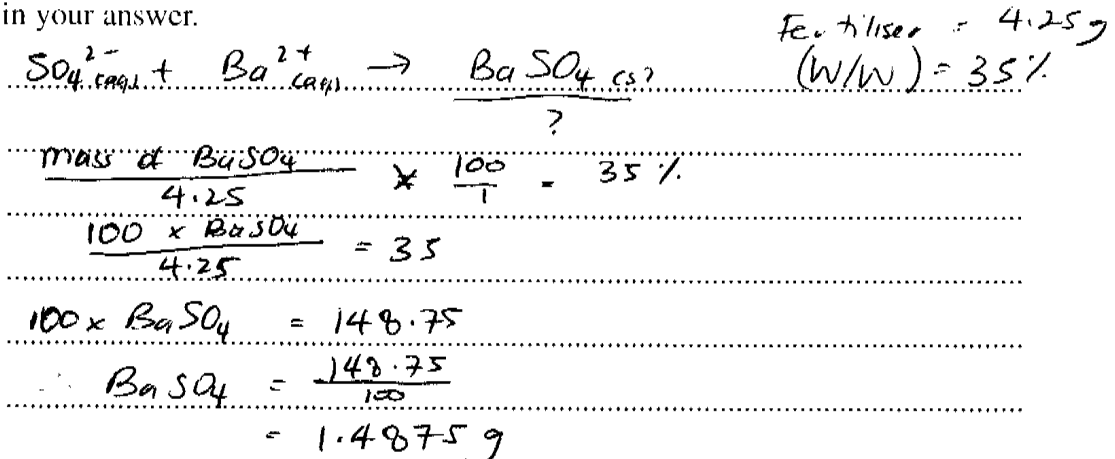 in your answer.
Fertiliser = 4.25g
(W/W) = 35%
SO₄²⁻(aq) + Ba²⁺(aq) → BaSO₄(s)
?
mass of BaSO₄ / 4.25 × 100/1 = 35%
100 × BaSO₄ / 4.25 = 35
100 × BaSO₄ = 148.75
∴ BaSO₄ = 148.75 / 100
= 1.4875 g